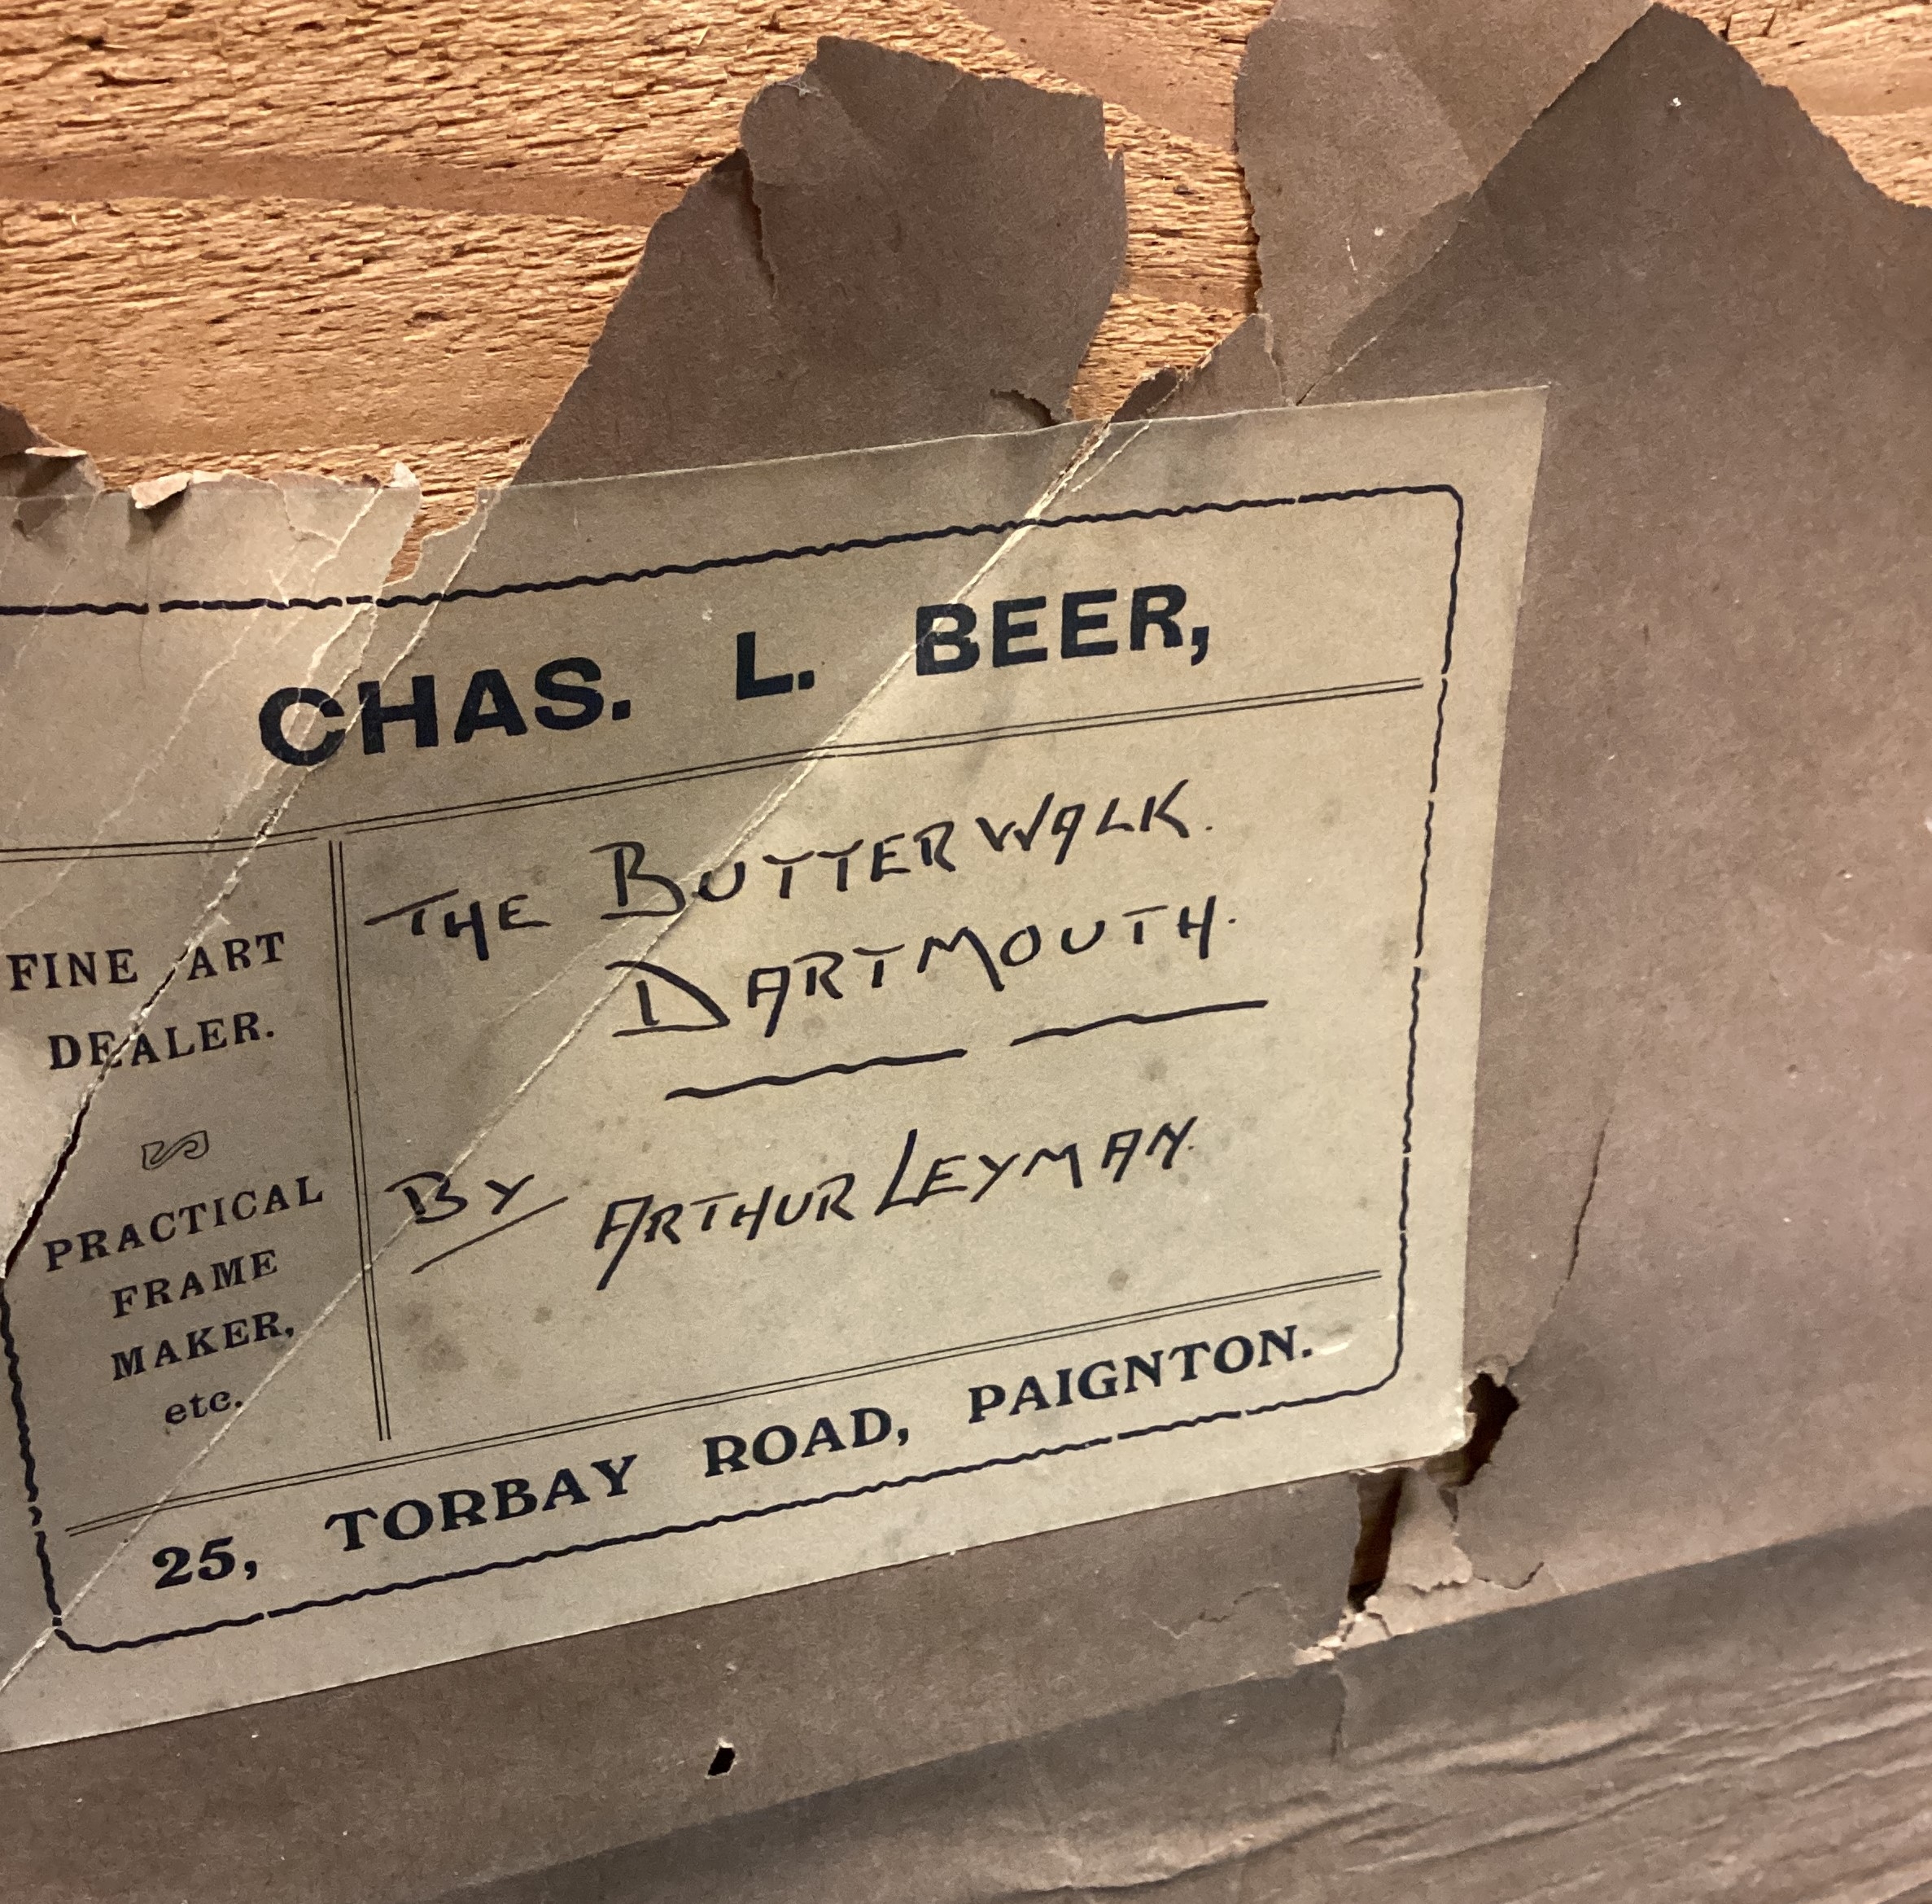 CHAS. L. BEER,
FINE ART
DEALER.
PRACTICAL
FRAME
MAKER,
etc.
THE BUTTERWALK.
DARTMOUTH.
BY ARTHUR LEYMAN.
25, TORBAY ROAD, PAIGNTON.